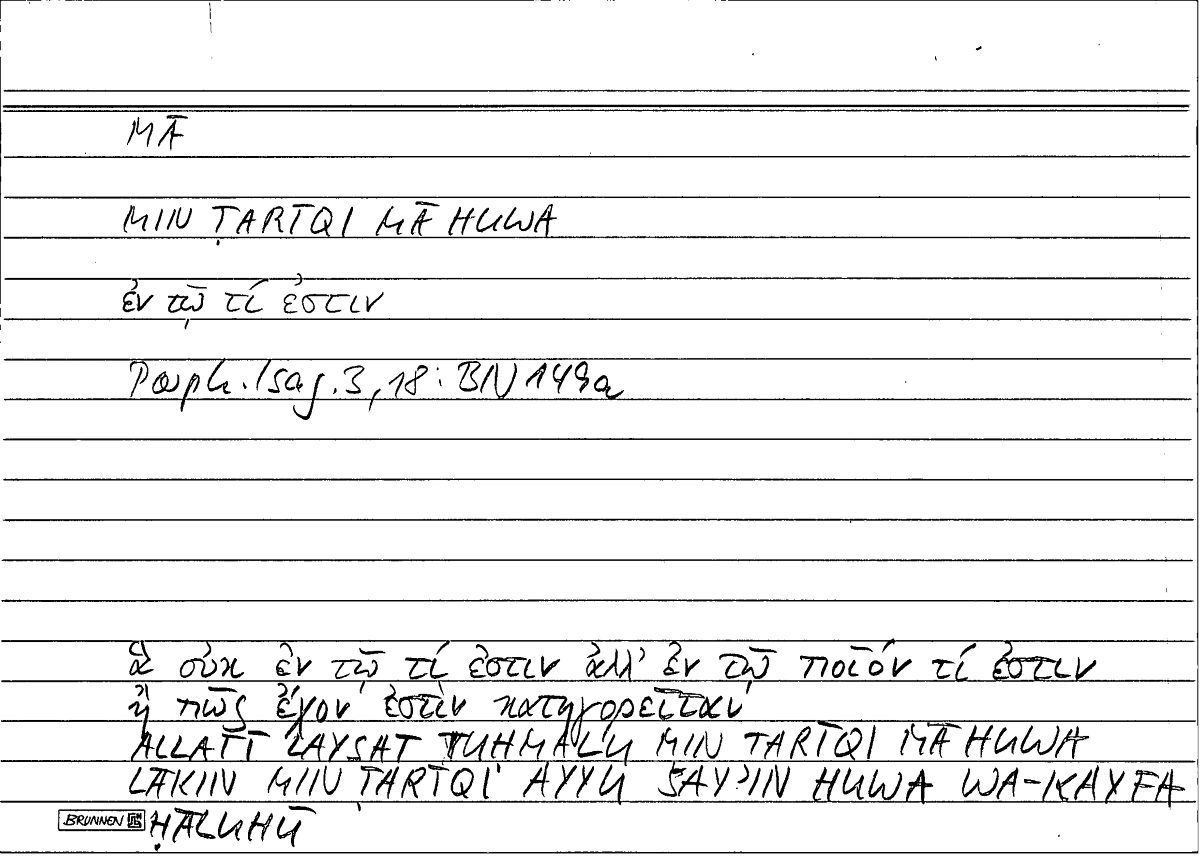 MĀ
MIN ṬARĪQI MĀ HUWA
ἐν τῷ τί ἐστιν
Porph. Isag. 3, 18: BN 149a
ἃ οὐκ ἐν τῷ τί ἐστιν ἀλλ' ἐν τῷ ποῖόν τί ἐστιν
ἢ πῶς ἔχον ἐστὶν κατηγορεῖται
ALLATĪ LAYSAT TUḤMALU MIN ṬARĪQI MĀ HUWA
LĀKIN MIN ṬARĪQI AYYU ŠAY'IN HUWA WA-KAYFA
BRUNNEN ḤĀLUHŪ